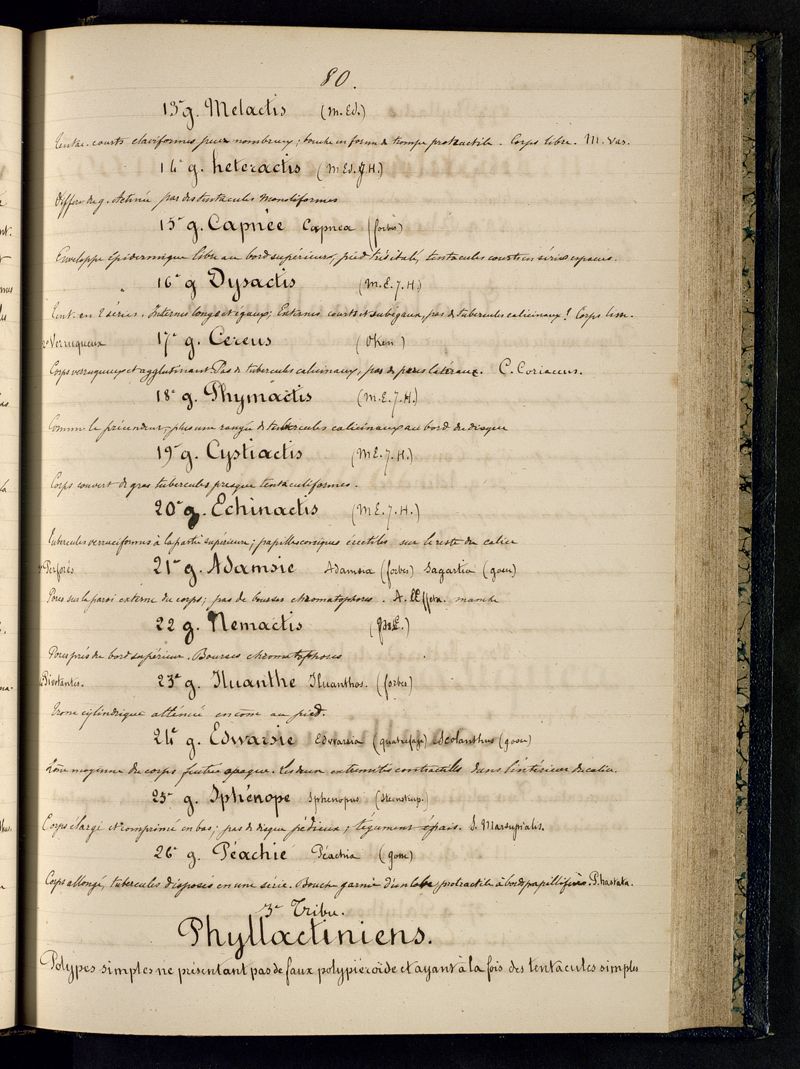 80.
13e g. Melactis (M. Ed.)
Tentac. courts claviformes peu nombreux; bouche en forme de trompe protractile. Corps libre. M. Var.
14e g. heteractis (M Ed. J H.)
Differe du g. Actinie par des tentacules moniliformes
15e g. Capnée Capnea (forbes)
Enveloppe épidermique libre au bord supérieur, pied très étalé, tentacules courts en séries espacées.
16e g. Dysactis (M. E. J. H.)
Tent. en 2 séries. Internes longs et égaux; Externes courts et subégaux, pas de tubercules calicinaux! Corps lim.
2o Verruqueux 17e g. Cereus (Oken)
Corps verruqueux et agglutinant Pas de tubercules calicinaux, pas de pores latéraux. C. Coriaceus.
18e g. Phymactis (M. E. J. H.)
Comme le précédent; plus une rangée de tubercules calicinaux au bord du disque
19e g. Cystiactis (M E. J. H.)
Corps couvert de gros tubercules presque tentaculiformes.
20e g. Echinactis (M. E. J. H.)
tubercules verruciformes à la partie supérieure; papilles coniques érectiles sur le reste du calice
Perforés 21e g. Adamsie Adamsia (forbes) Sagartia (gosse)
Pores sur la paroi externe du corps; pas de bourses chromatophores. A. Effeta. manche
22 g. Nemactis (M. E.)
Pores près du bord supérieur. Bourses chromatophores
Pivotantes. 23e g. Iluanthe Iluanthos. (forbes)
Trone cylindrique atténué en cône au pied.
24e g. Edwarsie Edwarsia (quatrefage) Scolanthus (gosse)
Zône moyenne du corps feutrée opaque. Les deux extremités contractiles dans l'intérieur du calice.
25e g. Sphénope Sphenopus (Steenstrup.)
Corps élargi et comprimé en bas; pas de disque pédieux; tégument épais. S. Marsupialis.
26e g. Péachie Péachia (gosse)
Corps allongé, tubercules disposés en une série. Bouche garnie d'un lobe, protractile à bords papillifères. P. hastata.
3e Tribu.
Phyllactiniens.
Polypes simples ne présentant pas de faux polypiéroïde et ayant à la fois des tentacules simples